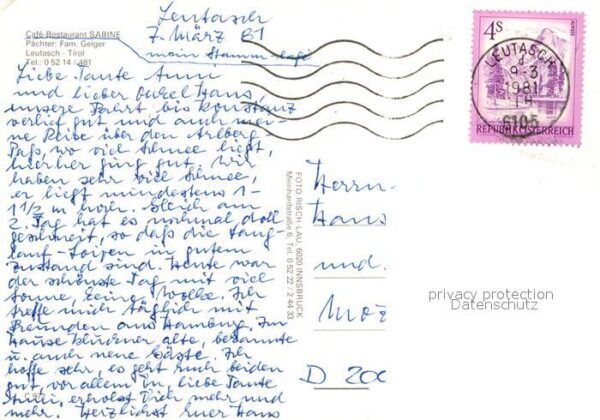 Café-Restaurant SABINE
Pächter: Fam. Geiger
Leutasch - Tirol
Tel.: 0 52 14 / 481
Leutasch
7. März 81
mein Stammcafé
Liebe Tante Anni
und lieber Onkel Hans
unsere Fahrt bis Konstanz
verlief gut und auch mei-
ne Reise über den Arlberg-
Paß, wo viel Schnee liegt,
hierher ging gut. Wir
haben sehr viel Schnee,
er liegt mindestens 1-
1 1/2 m hoch. Gleich am
2. Tag hat es nochmal doll
geschneit, so daß die Lang-
lauf-Loipen in gutem
Zustand sind. Heute war
der schönste Tag mit viel
Sonne, keine Wolke. Ich
treffe mich täglich mit
Freunden aus Hamburg, im
Hause sind alte, bekannte
u. auch neue Gäste. Ich
hoffe sehr, es geht Euch beiden
gut, vor allem Du, liebe Tante
Anni, erholst Dich mehr und
mehr. Herzlichst Euer Hans
C 972
FOTO RISCH-LAU, 6020 INNSBRUCK
Meinhardstraße 6, Tel. 0 52 22 / 2 44 33
4S
LEUTASCH
9.-3.
1981
6105
REPUBLIK ÖSTERREICH
Herrn
Hans
und
D 200
privacy protection
Datenschutz